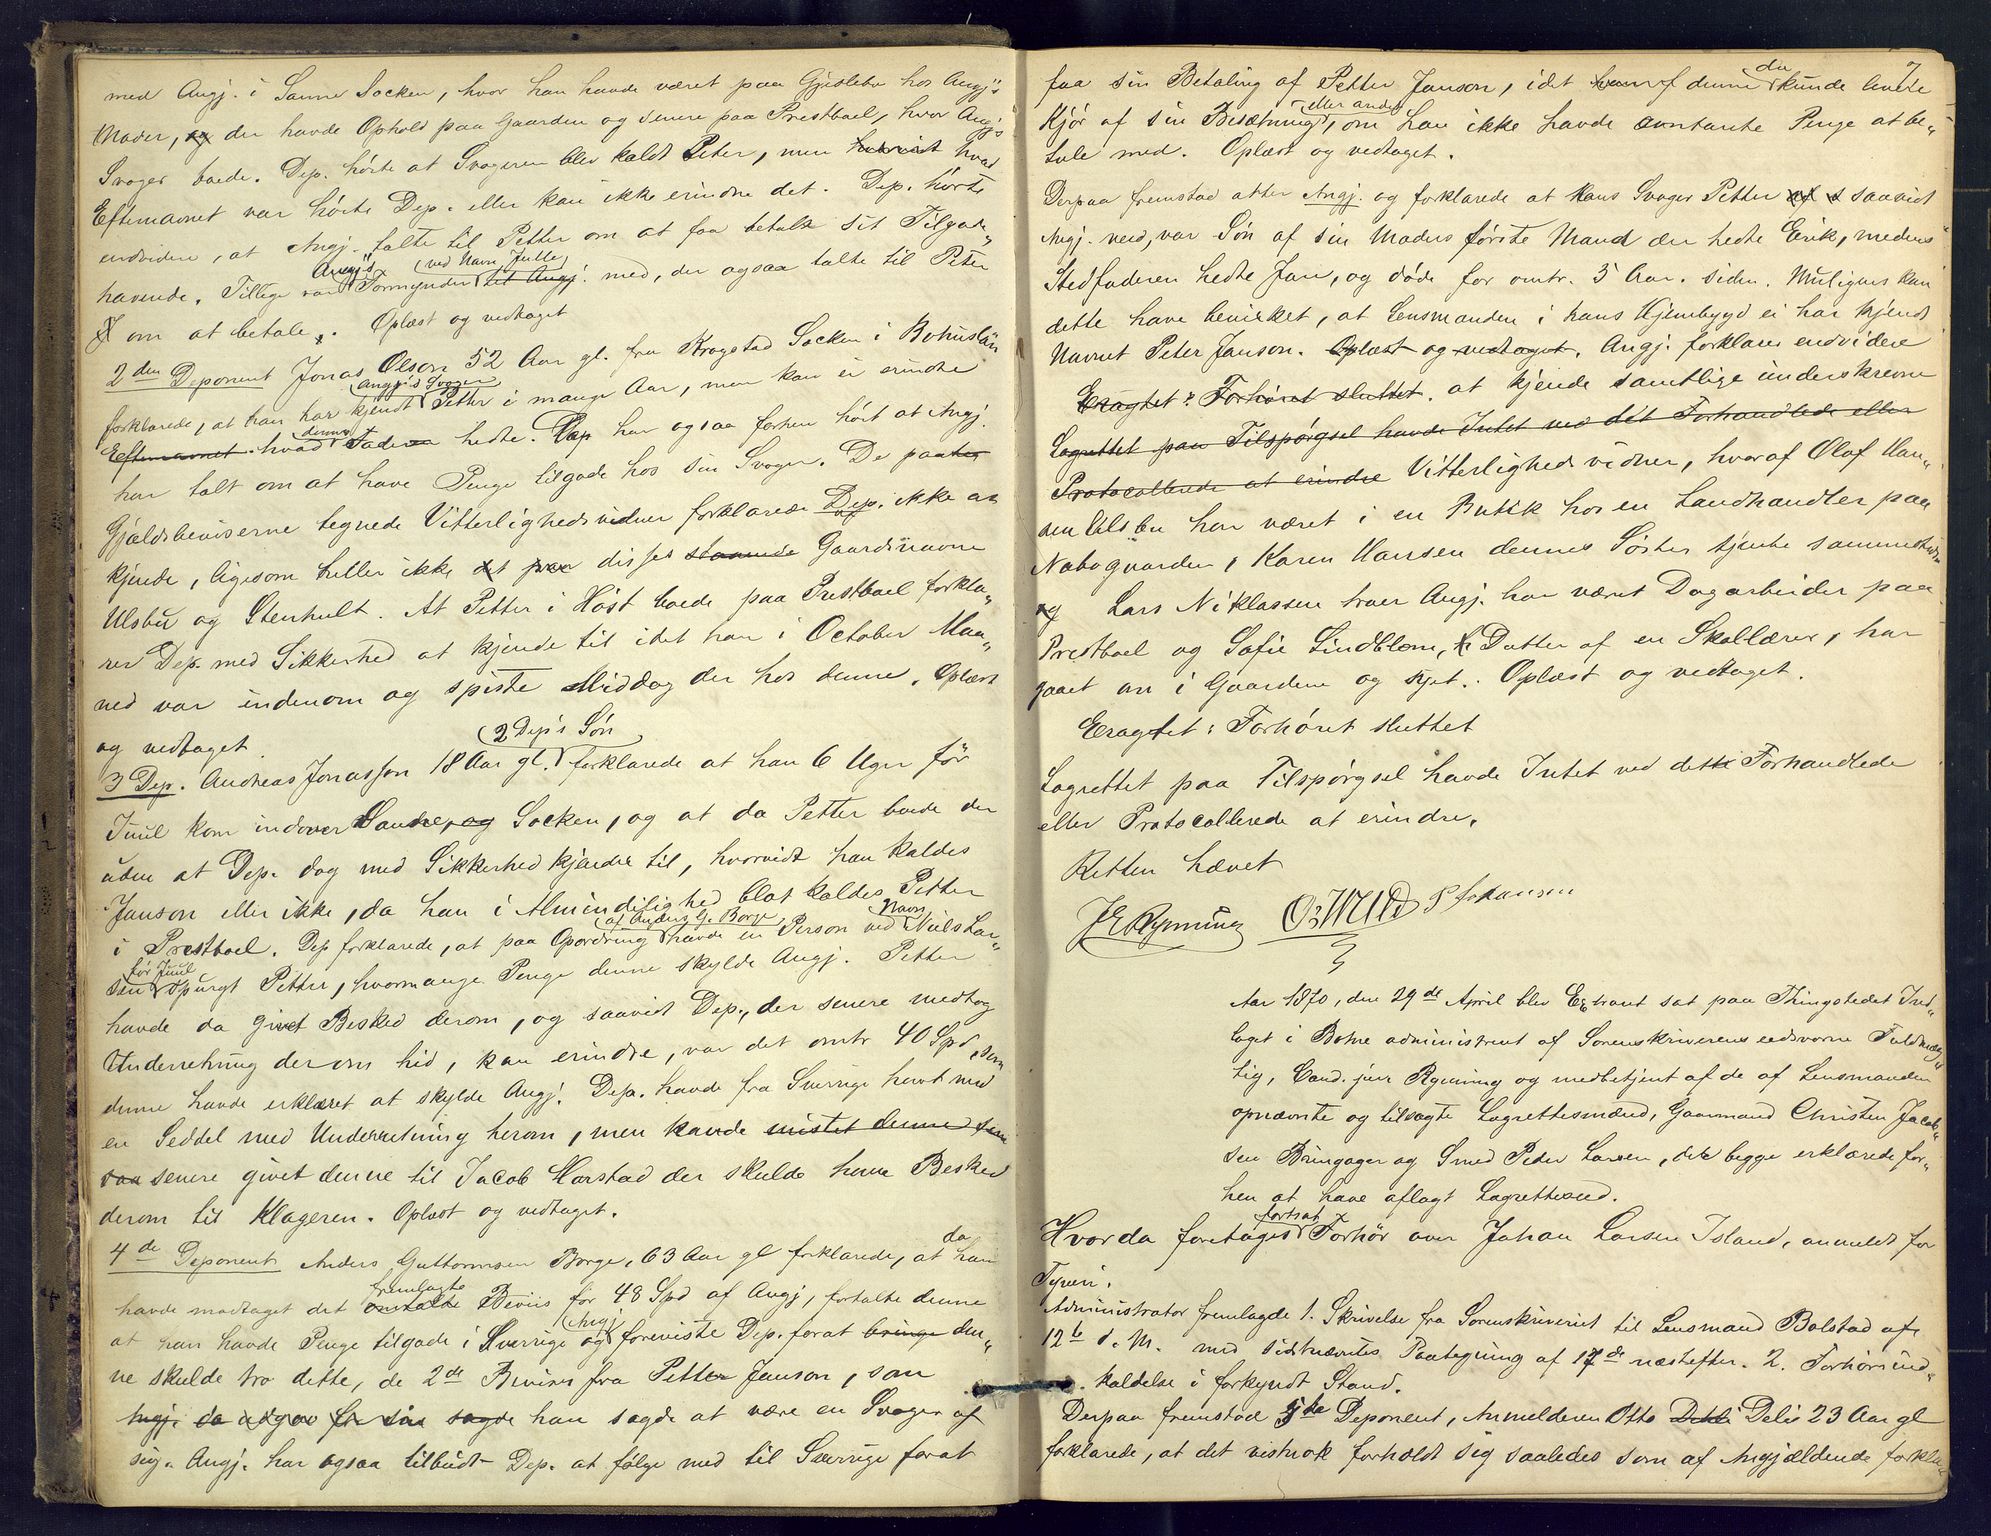 med Angj. i Sanne Socken, hvor han havde været paa Gjæstebu hos Angj's
Moder, og der havde Ophold paa Gaarden og senere paa Prestboel, hvor Angj's
Svoger boede. Dep. hørte at Svogeren blev kaldt Peter, men hvad
Efternavnet var hørte Dep. eller kan ikke erindre det. Dep. hørte
endvidere, at Angj. talte til Petter om at faa betalt sit Tilgode-
Angj's ved Navn Julle
havende. Tillige var Formynder til Angj. med, der ogsaa talte til Peter
om at betale. Oplæst og vedtaget
2den Deponent Jonas Olson 52 Aar gl. fra Krogstad Socken i Bohuslän
Angj's Svoger
forklarede, at han har kjendt Petter i mange Aar, men kan ei erindre
dennes
Efternavnet hvad Fader hedte. Dep har ogsaa forhen hørt at Angj.
har talt om at have Penge tilgode hos sin Svoger. De paa
Gjældsbeviserne tegnede Vitterlighedsvidner forklarede Dep. ikke at
kjende, ligesom heller ikke disses Gaardsnavne
Ulsbu og Stenhult. At Petter i Høst boede paa Prestboel forkla-
rer Dep. med Sikkerhed at kjende til idet han i October Maa-
ned var indenom og spiste Middag der hos denne. Oplæst
og vedtaget.
2 Dep's Søn
3 Dep. Andreas Jonasson 18 Aar gl. forklarede at han 6 Uger før
Juul kom indover Sanne, og Socken, og at da Petter boede der
uden at Dep. dog med Sikkerhed kjendte til, hvorvidt han kaldes
Janson eller ikke, da han i Almindelighed blot kaldes Petter
af Anders G. Borge Navn
i Prestboel. Dep forklarede, at paa Opfordring havde en Person ved Niels Lar-
før Juul
sen spurgt Petter, hvormange Penge denne skylde Angj. Petter
havde da givet Besked derom, og saavidt Dep., der senere medtog
Underretning derom hid, kan erindre, var det omtr 40 Spd, som
denne havde erklæret at skylde Angj. Dep. havde fra Sverige havt med
en Seddel med Underretning herom, men havde mistet denne
senere givet denne til Jacob Harstad der skulde have Besked
derom til Klageren. Oplæst og vedtaget.
da
4de Deponent Anders Guttormsen Borge, 63 Aar gl forklarede, at han
fremlagte
havde modtaget det omtalte Beviis for 48 Spd af Angj, fortalte denne
Angj
at han havde Penge tilgode i Sverrige og foreviste Dep. forat bringe den-
ne skulde tro dette, de 2de Beviser fra Petter Janson, som
Angj. da udgav for sin sagde han sagde at være en Svoger af
sig. Angj. har ogsaa tilbudt Dep. at følge med til Sverrige forat
7
da
faa sin Betaling af Petter Janson, idet denne kunde
eller andet
Kjør af sin Besætning, om han ikke havde contante Penge at be-
tale med. Oplæst og vedtaget.
Derpaa fremstod atter Angj. og forklarede at hans Svoger Petter saavidt
Angj. veed, var Søn af sin Moders første Mand der hedte Erik, medens
Stedfaderen hedte Jan, og døde for omtr. 5 Aar siden. Muligens kan
dette have bevirket, at Lensmanden i hans Hjembygd ei har kjendt
Navnet Peter Janson. Oplæst og vedtaget. Angj. forklarer endvidere
Eragtet: Forhøret sluttet. at kjende samtlige underskrevne
Lagrettet paa Tilspørgsel havde Intet ved det Forhandlede eller
Protocollerede at erindre Vitterlighedsvidner, hvoraf Olof Han-
sen Ulsbu har været i en Butik hos en Landhandler paa
Nabogaarden, Karen Hansen dennes Søster tjente sammesteds
og Lars Niklassen troer Angj. har været Dagarbeider paa
Prestboel og Sofie Lindblom, Datter af en Skollærer, har
gaaet om i Gaardene og syet. Oplæst og vedtaget.
Eragtet: Forhøret sluttet
Lagrettet paa Tilspørgsel havde Intet ved dette Forhandlede
eller Protocollerede at erindre.
Retten hævet
Aar 1870, den 29de April blev Extraret sat paa Thingstedet
i Botne administreret af Sorenskriverens eedsvorne Fuldmæg-
tig, Cand. jur Rynning og medbetjent af de af Lensmanden
opnævnte og tilsagte Lagrettesmænd, Gaarmand Christen Jacob-
sen Bringager og Smed Peder Larsen, der begge erklærede for-
hen at have aflagt Lagretteseed.
fortsat
Hvorda foretoges Forhør over Johan Larsen Island, anmeldt for
Tyveri.
Administrator fremlagde 1. Skrivelse fra Sorenskriveriet til Lensmand Bolstad af
12te d. M. med sidstnævntes Paategning af 17de næstefter. 2. Forhørsind-
kaldelse i forkyndt Stand.
Derpaa fremstod 5te Deponent, Anmelderen Otto Delis 23 Aar gl
forklarede, at det vistnok forholdt sig saaledes som af Angjældende forkla-